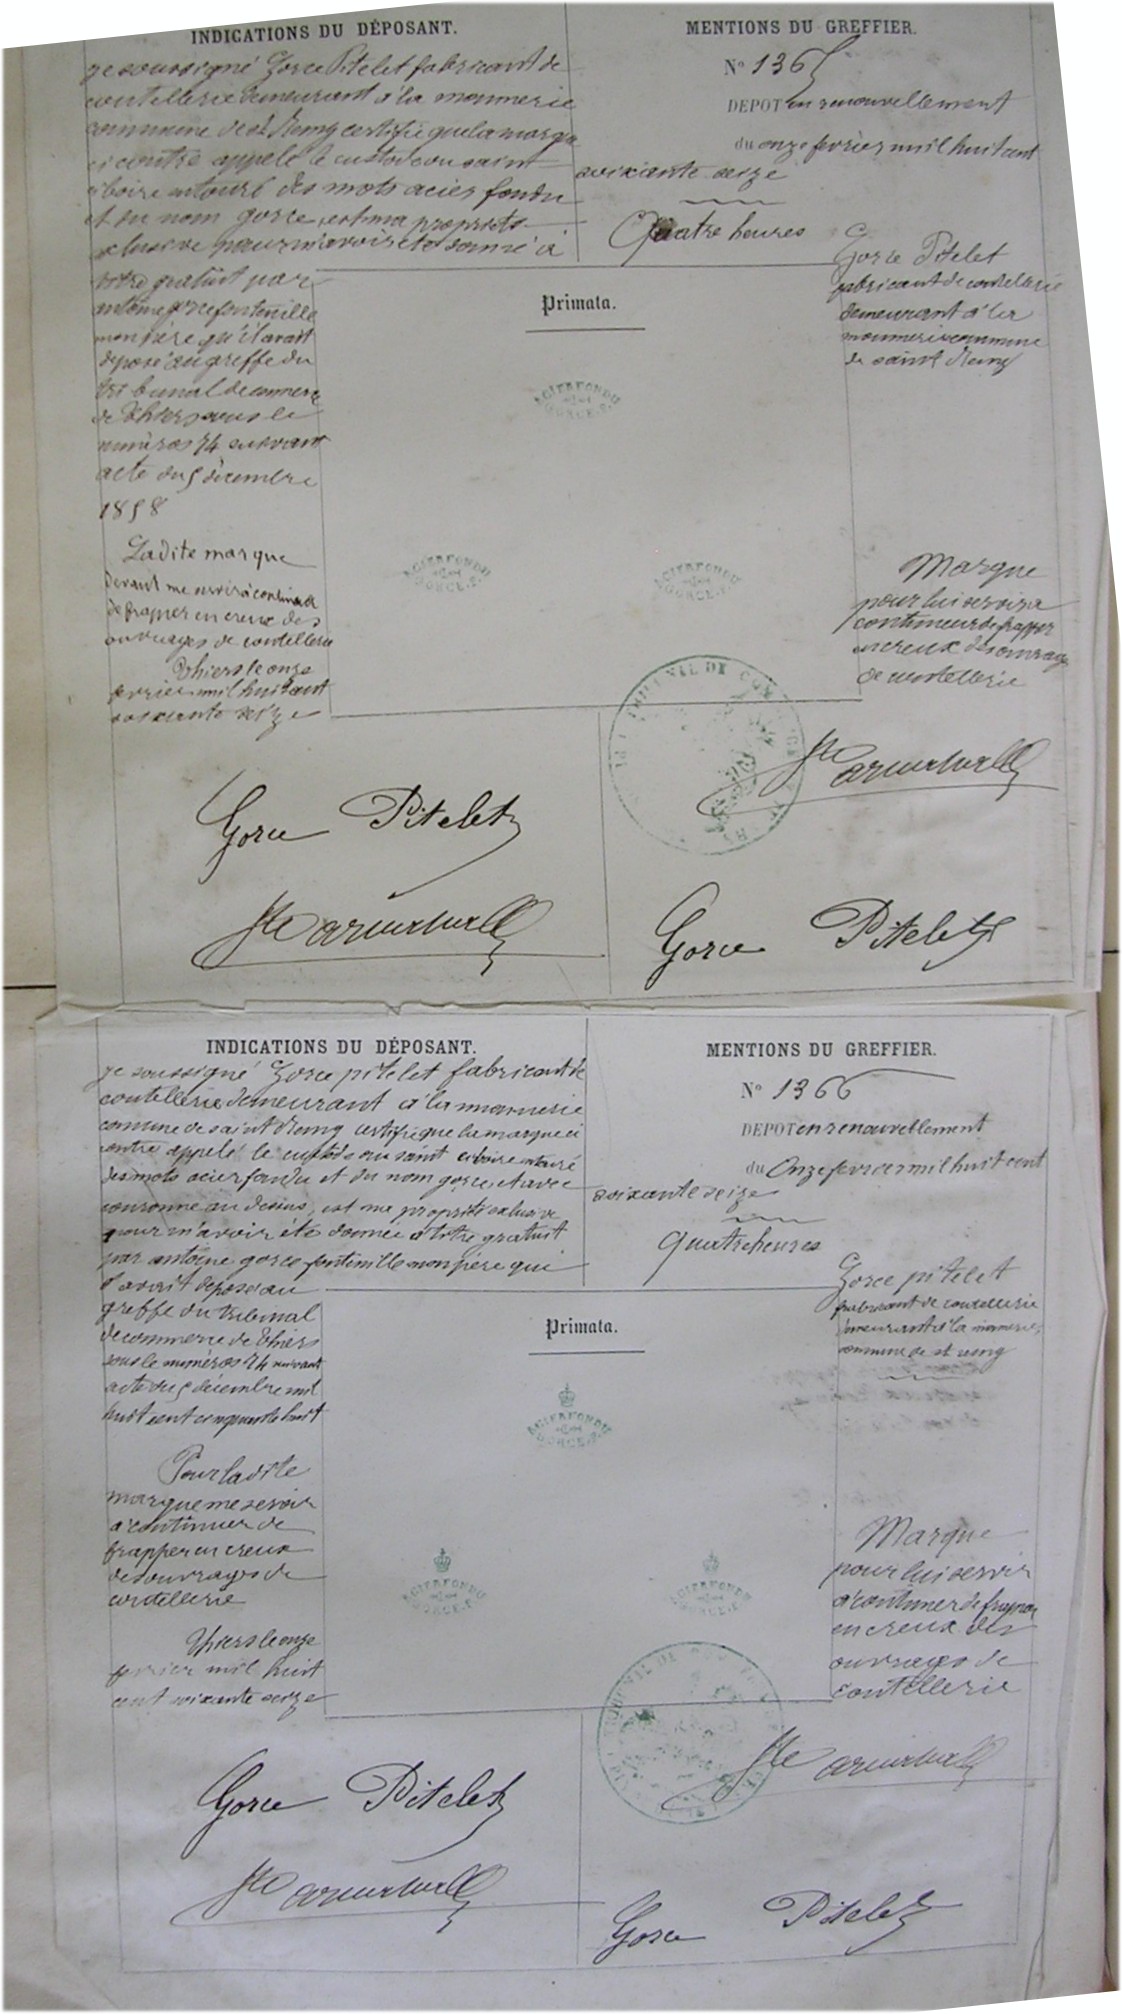 INDICATIONS DU DÉPOSANT.
je soussigné Gorce Pitelet fabricant de
coutellerie demeurant à la monnerie
commune de st Remy certifie que la marque
ci contre appelé le custode ou saint
ciboire entouré des mots acier fondu
et du nom gorce, est ma propriété
exclusive pour m'avoir été donné à
titre gratuit par
antoine gorce fontenille
mon père qu'il avait
déposé au greffe du
tribunal de commerce
de Thiers sous le
numéros 74 suivant
acte du 5 décembre
1858
La dite marque
devant me servir à continuer
de frapper en creux des
ouvrages de coutellerie
Thiers le onze
fevrier mil huit cent
soixante seize
Gorce Pitelet
MENTIONS DU GREFFIER.
N° 1365
DEPOT en renouvellement
du onze fevrier mil huit cent
soixante seize
Quatre heures
Gorce Pitelet
fabricant de coutellerie
demeurant à la
monnerie commune
de saint Remy
Primata.
ACIER FONDU
GORCE.P.
ACIER FONDU
GORCE.P.
ACIER FONDU
GORCE.P.
Marque
pour lui servir a
continuer de frapper
en creux des ouvrages
de coutellerie
TRIBUNAL DE COMMERCE
Gorce Pitelet
INDICATIONS DU DÉPOSANT.
je soussigné Gorce pitelet fabricant de
coutellerie demeurant à la monnerie
commune de saint Remy certifie que la marque ci
contre appelé le custode ou saint ciboire entouré
des mots acier fondu et du nom gorce et avec
couronne au dessus, est ma propriété exclusive
pour m'avoir été donnée à titre gratuit
par antoine gorce fontenille mon père qui
l'avait déposé au
greffe du tribunal
de commerce de Thiers
sous le numéros 74 suivant
acte du 5 décembre mil
huit cent cinquante huit
Pour la dite
marque me servir
a continuer de
frapper en creux
des ouvrages de
coutellerie
Thiers le onze
fevrier mil huit
cent soixante seize
Gorce Pitelet
MENTIONS DU GREFFIER.
N° 1366
DEPOT en renouvellement
du Onze fevrier mil huit cent
soixante seize
Quatre heures
Gorce pitelet
fabricant de coutellerie
demeurant à la monnerie
commune de st remy
Primata.
ACIER FONDU
GORCE.P.
ACIER FONDU
GORCE.P.
ACIER FONDU
GORCE.P.
Marque
pour lui servir
a continuer de frapper
en creux des
ouvrages de
coutellerie
TRIBUNAL DE COMMERCE
Gorce Pitelet